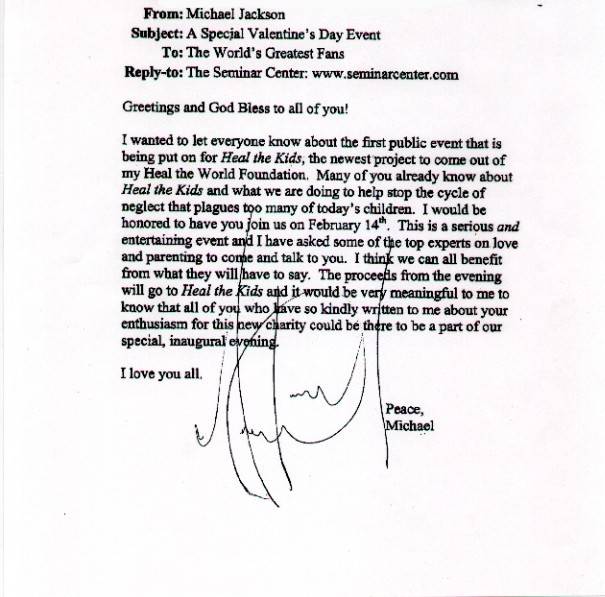 From: Michael Jackson
Subject: A Special Valentine's Day Event
To: The World's Greatest Fans
Reply-to: The Seminar Center: www.seminarcenter.com
Greetings and God Bless to all of you!
I wanted to let everyone know about the first public event that is
being put on for Heal the Kids, the newest project to come out of
my Heal the World Foundation. Many of you already know about
Heal the Kids and what we are doing to help stop the cycle of
neglect that plagues too many of today's children. I would be
honored to have you join us on February 14th. This is a serious and
entertaining event and I have asked some of the top experts on love
and parenting to come and talk to you. I think we can all benefit
from what they will have to say. The proceeds from the evening
will go to Heal the Kids and it would be very meaningful to me to
know that all of you who have so kindly written to me about your
enthusiasm for this new charity could be there to be a part of our
special, inaugural evening.
I love you all.
Peace,
Michael